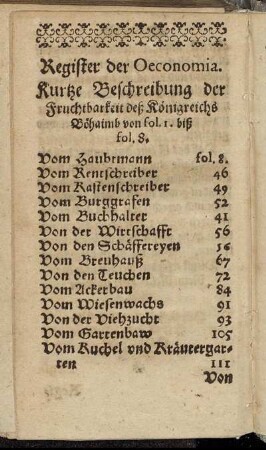 Register der Oeconomia.
Kurtze Beschreibung der
Fruchtbarkeit deß Königreichs
Böhaimb von fol. 1. biß
fol. 8.
Vom Haubtmann fol. 8.
Vom Rentschreiber 46
Vom Kastenschreiber 49
Vom Burggrafen 52
Vom Buchhalter 41
Von der Wirtschafft 56
Von den Schäffereyen 56
Vom Breuhauß 67
Von den Teuchen 72
Vom Ackerbau 84
Vom Wiesenwachs 91
Von der Viehzucht 93
Vom Gartenbaw 105
Vom Kuchel vnd Kräutergar-
ten 111
Von